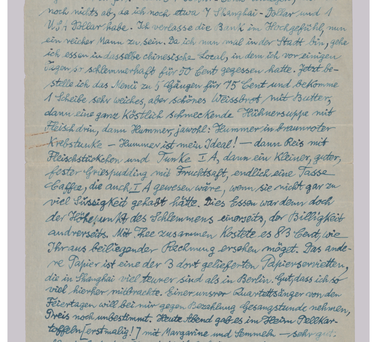 noch nichts ab, da ich noch etwa 7 Shanghai-Dollar und 1
U.S.-Dollar habe. Ich verlasse die Bank im Hochgefühl, nun
ein reicher Mann zu sein. Da ich nun mal in der Stadt bin, gehe
ich essen in dasselbe chinesische Lokal, in dem ich vor einigen
Tagen so schlemmerhaft für 50 Cent gegessen hatte. Jetzt be-
stelle ich das Menü zu 5 Gängen für 75 Cent und bekomme
1 Scheibe sehr weiches, aber schönes Weissbrot mit Butter,
dann eine ganz köstlich schmeckende Hühnersuppe mit
Fleisch drin, dann Hummer, jawohl: Hummer in braunroter
Krebstunke – Hummer ist mein Ideal! – dann Reis mit
Fleischstückchen und Tunke I A, dann ein kleiner, guter,
fester Griespudding mit Fruchtsaft, endlich eine Tasse
Kaffee, die auch I A gewesen wäre, wenn sie nicht gar zu
viel Süssigkeit gehabt hätte. Dies Essen war denn doch
der Höhepunkt des Schlemmens einerseits, der Billigkeit
andrerseits. Mit Tee zusammen kostete es 83 Cent, wie
Ihr aus beiliegender Rechnung ersehen möget. Das ande-
re Papier ist eine der 3 dort gelieferten Papierservietten,
die in Shanghai viel teurer sind als in Berlin. Gut, dass ich so
viel hierher mitbrachte. Einer unsrer Quartettsänger von den
Feiertagen will bei mir gegen Bezahlung Gesangstunde nehmen,
Preis noch unbestimmt. Heute Abend gab es im Heim Pellkar-
toffeln [erstmalig!] mit Margarine und Semmeln – sehr gut.